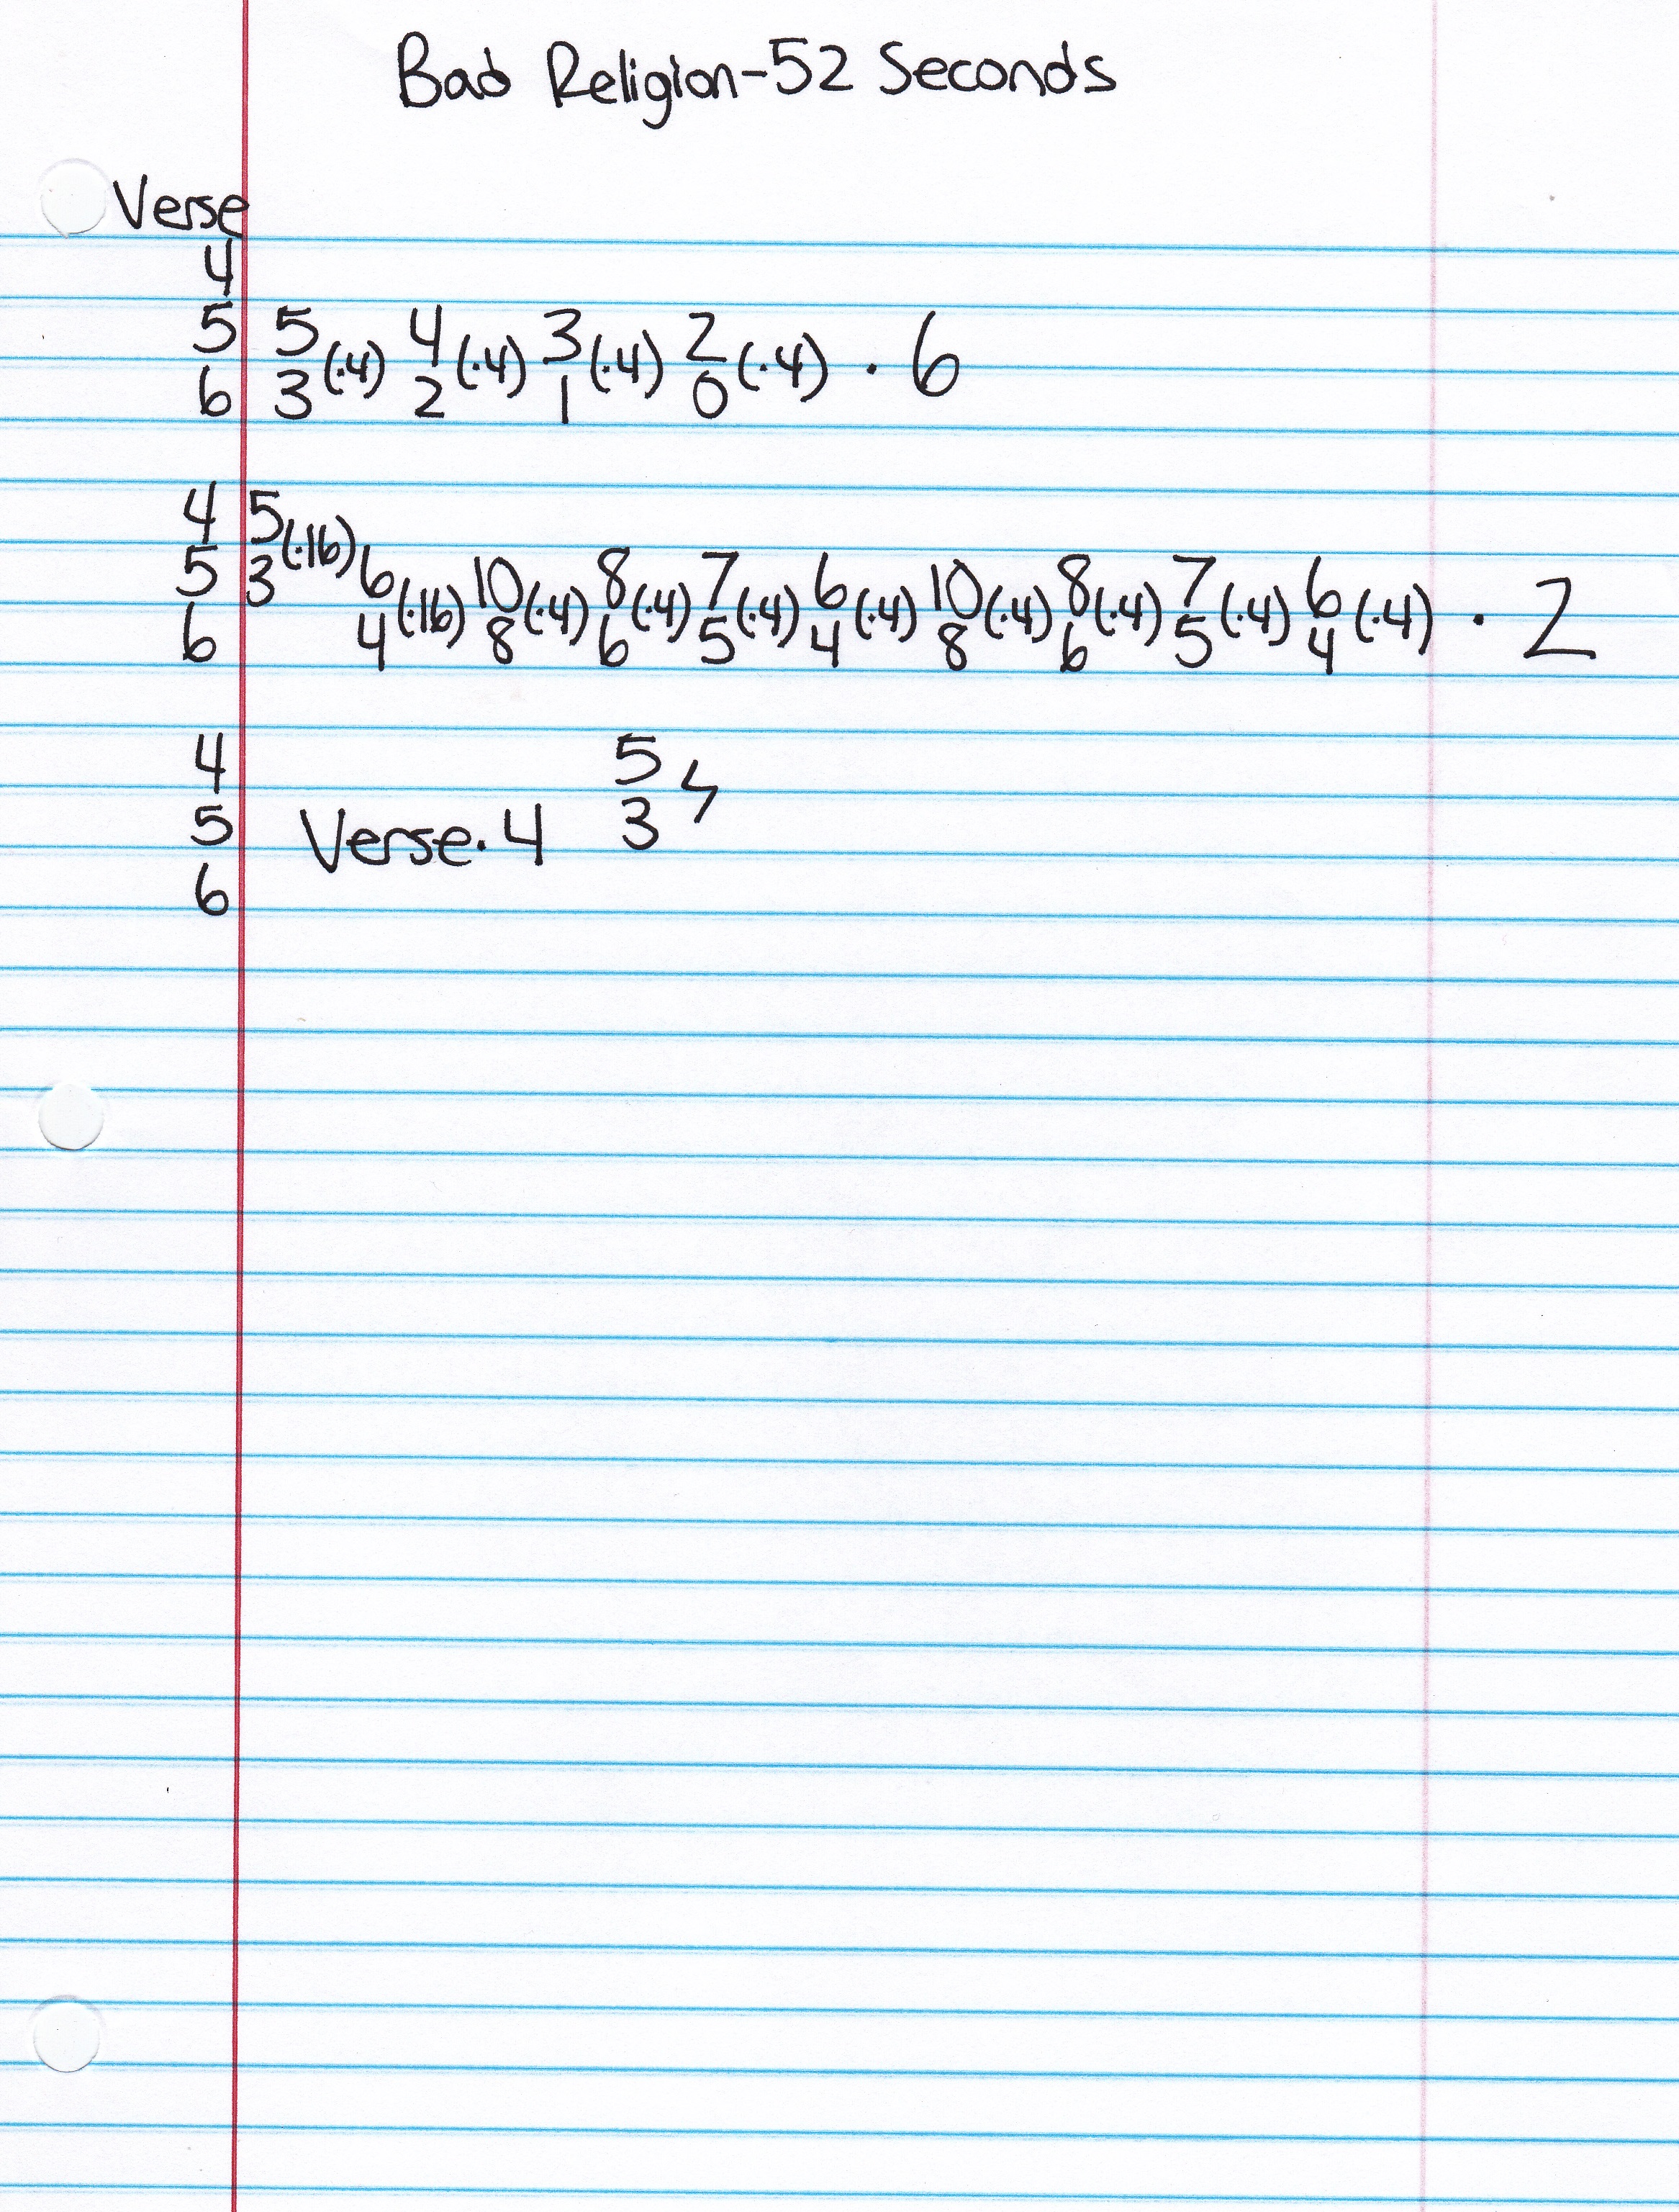 Bad Religion-52 Seconds
Verse
4
5 5 4 3 2
(·4) (·4) (·4) (·4) · 6
6 3 2 1 0
4 5
(·16)
5 3 6 10 8 7 6 10 8 7 6
(·16) (·4) (·4) (·4) (·4) (·4) (·4) (·4) (·4) · 2
6 4 8 6 5 4 8 6 5 4
4 5
5 Verse·4 3
6